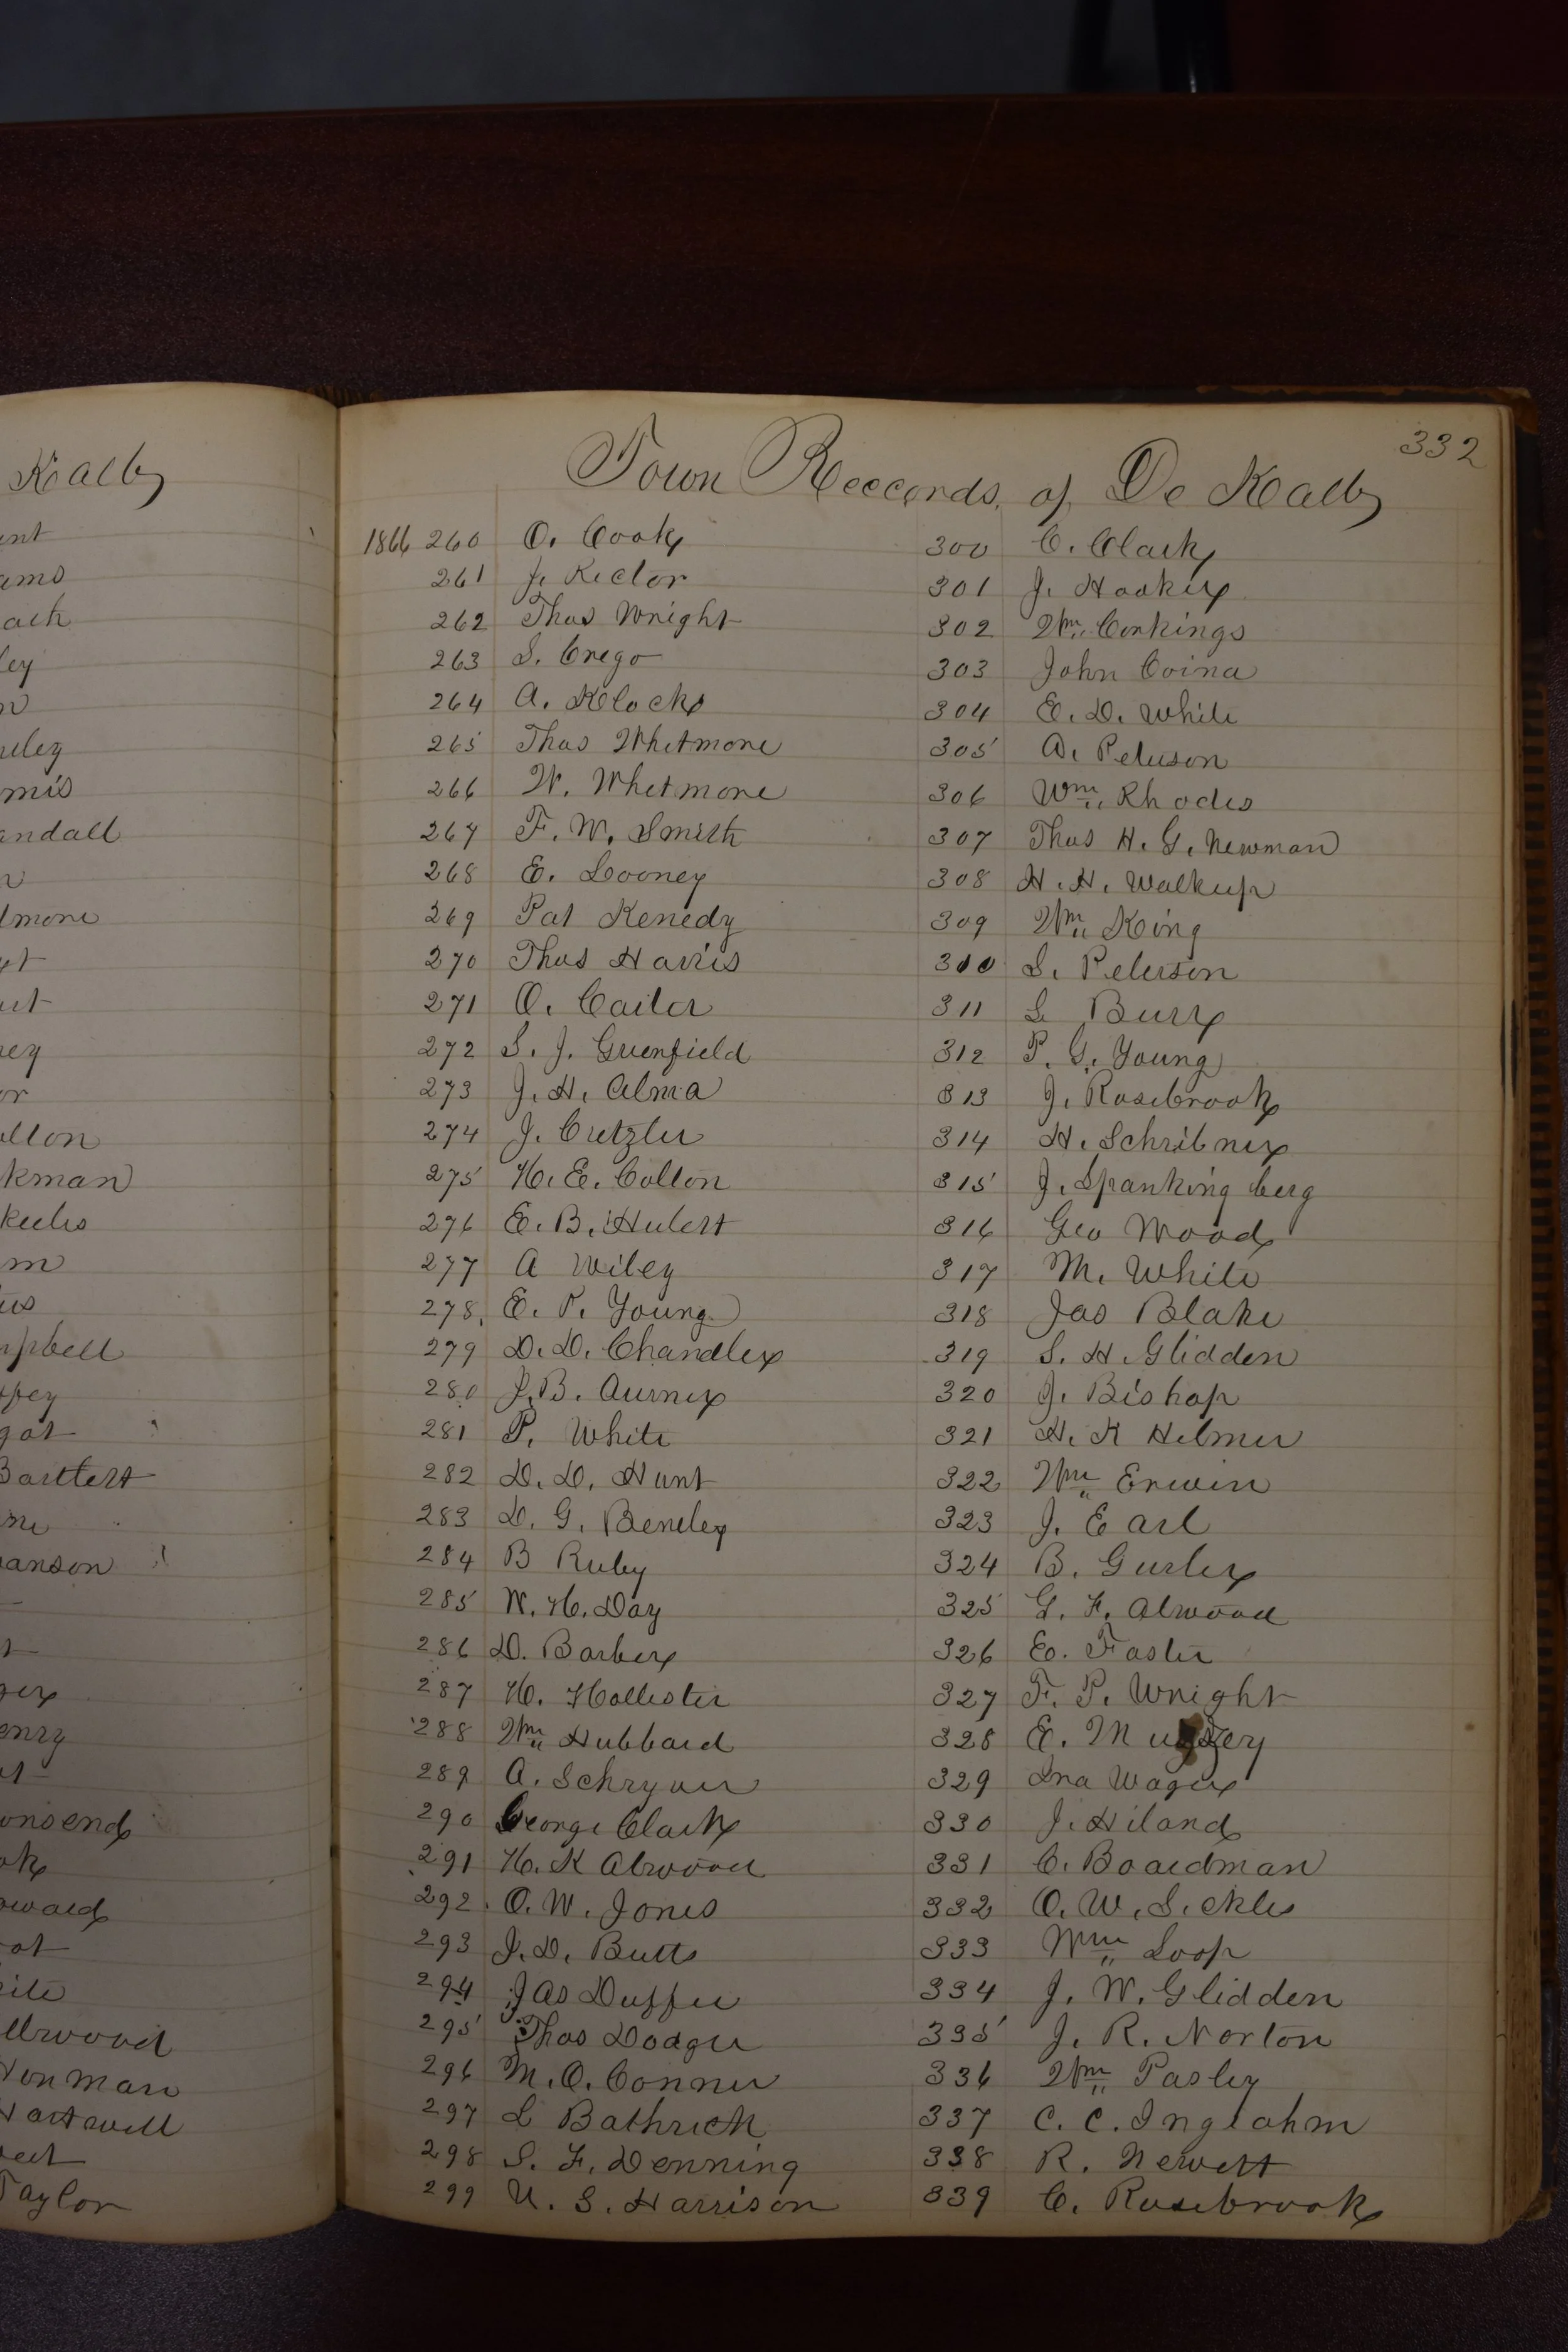 Kalb
ams
ley
andall
kman
m
pbell
Bartlett
anson
onsend
Taylor
332
Town Reccords, of De Kalb
1866 260 O. Cook
261 J. Rector
262 Thos Wright
263 S. Crego
264 A. Klock
265 Thos Whitmore
266 W. Whetmore
267 F. W. Smith
268 E. Looney
269 Pat Kenedy
270 Thos Harris
271 O. Carter
272 S. J. Greenfield
273 J. H. Alma
274 J. Cretzler
275 H. E. Colton
276 E. B. Hulert
277 A Wiley
278. E. P. Young
279 D. D. Chandler
280 J. B. Aurner
281 P. White
282 D. D. Hunt
283 D. G. Beneley
284 B Ruby
285 W. H. Day
286 D. Barber
287 H. Hollester
288 Wm Hubbard
289 A. Schryver
290 George Clark
291 H. K Atwood
292. O. W. Jones
293 J. D. Butts
294 Jas Duffee
295 Thos Dodger
296 M. O. Conner
297 L Bathrick
298 S. F. Denning
299 U. S. Harrison
300 C. Clark
301 J. Hooker
302 Wm Corkings
303 John Coina
304 E. D. White
305 A. Peterson
306 Wm Rhodes
307 Thos H. G. Newman
308 H. H. Walkup
309 Wm King
310 S. Peterson
311 L Burr
312 P. G. Young
313 J. Rosebrook
314 H. Schribner
315 J. Spanking berg
316 Geo Wood
317 M. White
318 Jas Blake
319 S. H. Glidden
320 J. Bishop
321 H. K Helmer
322 Wm Erwin
323 J. Earl
324 B. Gurler
325 G. F. Atwood
326 E. Foster
327 F. P. Wright
328 E.
329 Ira Wager
330 J. Hiland
331 C. Boardman
332 O. W. Sickles
333 Wm Loop
334 J. W. Glidden
335 J. R. Norton
336 Wm Pasley
337 C. C. Inglahm
338 R. Newett
339 C. Rosebrook